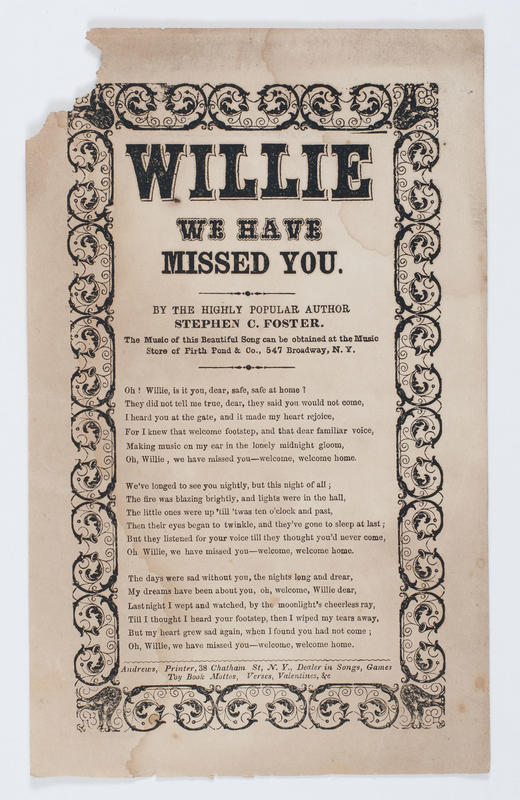 WILLIE
WE HAVE
MISSED YOU.
BY THE HIGHLY POPULAR AUTHOR
STEPHEN C. FOSTER.
The Music of this Beautiful Song can be obtained at the Music
Store of Firth Pond & Co., 547 Broadway, N. Y.
Oh ! Willie, is it you, dear, safe, safe at home ?
They did not tell me true, dear, they said you would not come,
I heard you at the gate, and it made my heart rejoice,
For I knew that welcome footstep, and that dear familiar voice,
Making music on my ear in the lonely midnight gloom,
Oh, Willie , we have missed you—welcome, welcome home.
We've longed to see you nightly, but this night of all ;
The fire was blazing brightly, and lights were in the hall,
The little ones were up 'till 'twas ten o'clock and past,
Then their eyes began to twinkle, and they've gone to sleep at last ;
But they listened for your voice till they thought you'd never come,
Oh Willie, we have missed you—welcome, welcome home.
The days were sad without you, the nights long and drear,
My dreams have been about you, oh, welcome, Willie dear,
Last night I wept and watched, by the moonlight's cheerless ray,
Till I thought I heard your footstep, then I wiped my tears away,
But my heart grew sad again, when I found you had not come ;
Oh, Willie, we have missed you—welcome, welcome home.
Andrews, Printer, 38 Chatham St, N. Y., Dealer in Songs, Games
Toy Book Mottos, Verses, Valentines, &c